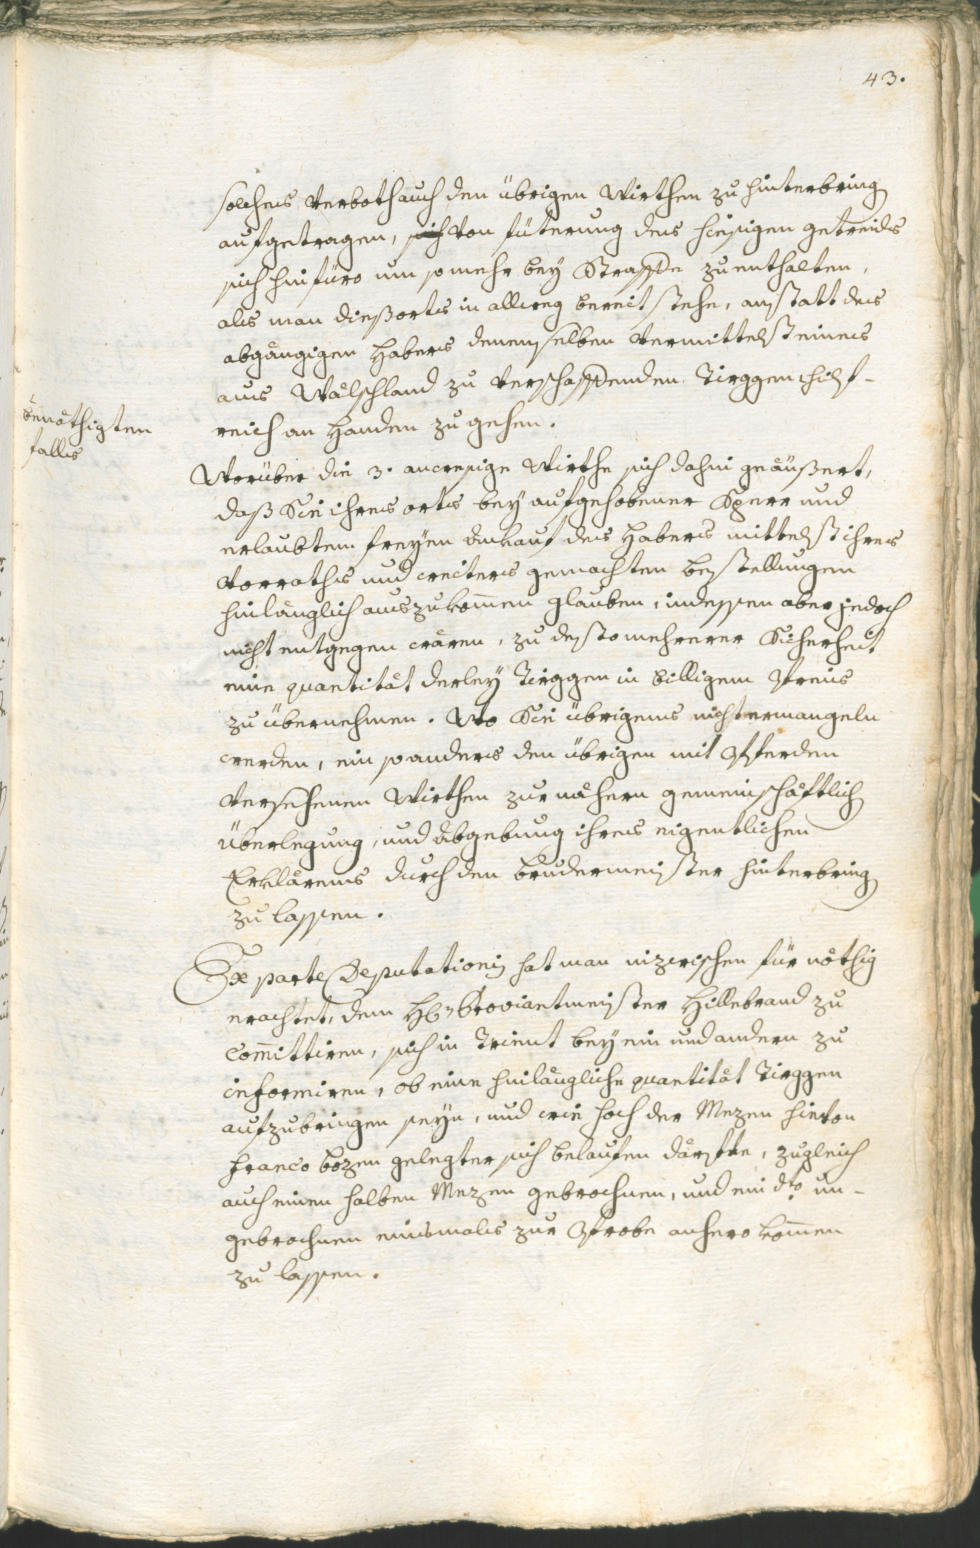 43.
solches Verboth auch den übrigen Wirthen zu hinterbring
aufgetragen, sich von füterung des hiesigen getreides
sich hinfüro um so mehr bey Straffe zu enthalten,
als man dießorts in allweg bereit stehe, anstatt des
abgängigen Habers denenselben vermittelst eines
aus Wälschland zu verschaffenden Türggen hilf-
reich an Handen zu gehen.
benöthigten
falls
Worüber die 3. anwesige Wirthe sich dahin geäußert,
daß Sie ihres orts bey aufgehobener Sperr und
erlaubtem freyen Ankauf des Habers mittelst ihres
Vorraths und weiters gemachten bestellungen
hinlänglich auszukom̄en glauben, indessen aber jedoch
nicht entgegen wären, zu desto mehrerer Sicherheit
eine quantität derley Türggen in billigem Preis
zu übernehmen. Wo Sie übrigens nicht ermangeln
werden, ein so anders den übrigen mit Pferden
versehenen Wirthen zur nähern gemeinschäftlich
Überlegung, und Abgebung ihres eigentlichen
Erklärens durch den brudermeister hinterbring
zu lassen.
Ex parte Deputationis hat man inzwischen für nöthig
erachtet, dem H: Proviantmeister Hillebrand zu
Com̄ittiren, sich in Trient bey ein und andern zu
informiren, ob eine hinlängliche quantität Türggen
aufzubringen seyn, und wie hoch der Mezen hievon
franco bozen gelegter sich belaufen därfte, zugleich
auch einen halben Mezen gebrochnen, und ein dto un-
gebrochnen einsmals zur Probe anhero kom̄en
zu lassen.